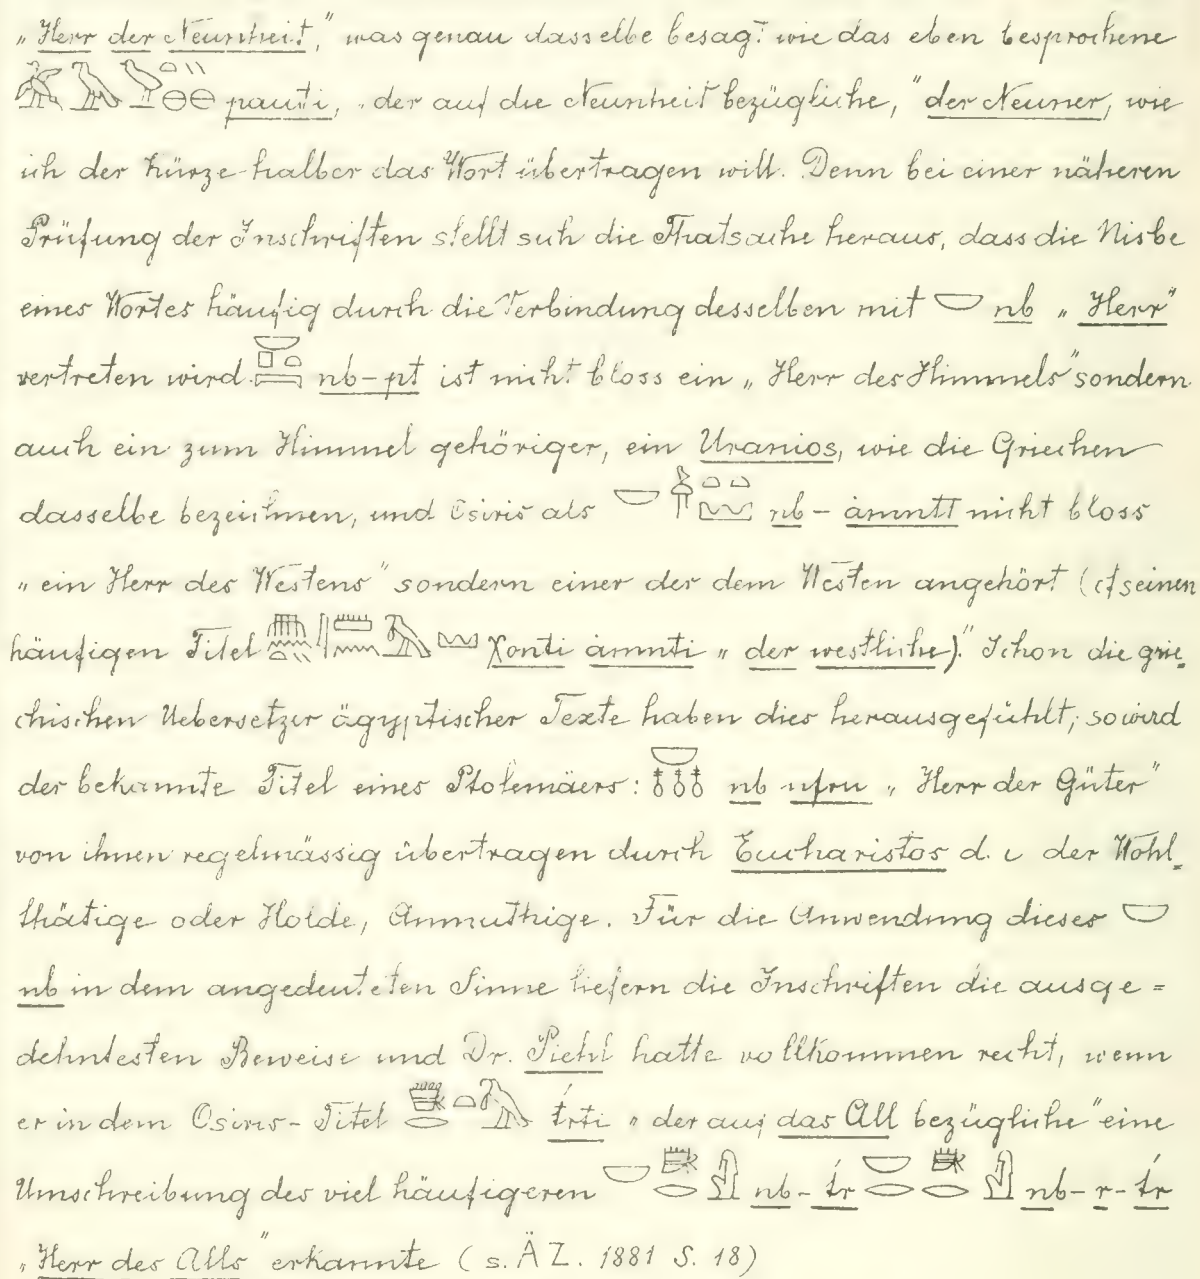 „Herr der Neunheit,” was genau dasselbe besagt wie das eben besprochene
pauti, „der auf die Neunheit bezügliche,” der Neuner, wie
ich der Kürze halber das Wort übertragen will. Denn bei einer näheren
Prüfung der Inschriften stellt sich die Thatsache heraus, dass die Nisbe
eines Wortes häufig durch die Verbindung desselben mit 𓎟 nb „Herr”
vertreten wird. nb-pt ist nicht bloss ein „Herr des Himmels” sondern
auch ein zum Himmel gehöriger, ein Uranios, wie die Griechen
dasselbe bezeichnen, und Osiris als nb-ȧmntt nicht bloss
„ein Herr des Westens” sondern einer der dem Westen angehört (cf seinen
häufigen Titel χonti ȧmnti „der westliche).” Schon die grie-
chischen Uebersetzer ägyptischer Texte haben dies herausgefühlt, so wird
der bekannte Titel eines Ptolemäers: nb nfru „Herr der Güter”
von ihnen regelmässig übertragen durch Eucharistos d. i der Wohl-
thätige oder Holde, Anmuthige. Für die Anwendung dieses 𓎟
nb in dem angedeuteten Sinne liefern die Inschriften die ausge=
dehntesten Beweise und Dr. Piehl hatte vollkommen recht, wenn
er in dem Osiris-Titel t́rti „der auf das All bezügliche” eine
Umschreibung des viel häufigeren nb-t́r nb-r-t́r
„Herr des Alls” erkannte (s. ÄZ. 1881 S. 18)